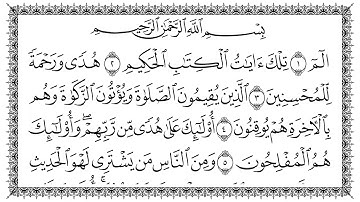 بِسْمِ ٱللَّهِ ٱلرَّحْمَٰنِ ٱلرَّحِيمِ
الٓمٓ ۝١ تِلْكَ ءَايَٰتُ ٱلْكِتَٰبِ ٱلْحَكِيمِ ۝٢ هُدًى وَرَحْمَةً
لِّلْمُحْسِنِينَ ۝٣ ٱلَّذِينَ يُقِيمُونَ ٱلصَّلَوٰةَ وَيُؤْتُونَ ٱلزَّكَوٰةَ وَهُم
بِٱلْءَاخِرَةِ هُمْ يُوقِنُونَ ۝٤ أُو۟لَٰٓئِكَ عَلَىٰ هُدًى مِّن رَّبِّهِمْ ۖ وَأُو۟لَٰٓئِكَ
هُمُ ٱلْمُفْلِحُونَ ۝٥ وَمِنَ ٱلنَّاسِ مَن يَشْتَرِى لَهْوَ ٱلْحَدِيثِ